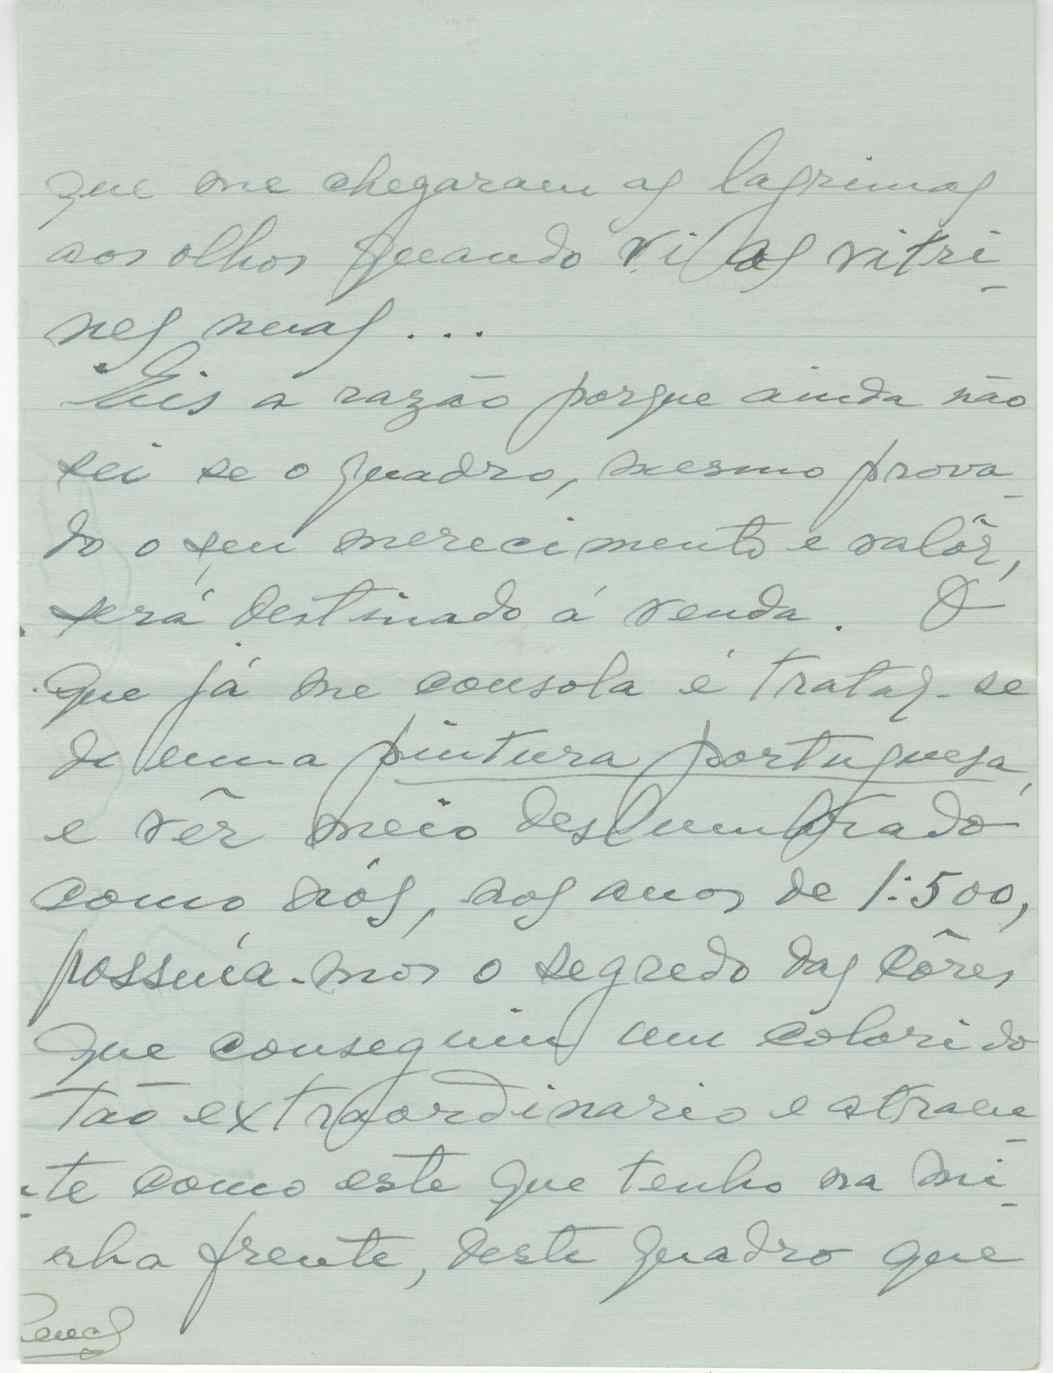 que me chegaram as lagrimas
aos olhos quando vi as vitri-
nes nuas...
Eis a razão porque ainda não
sei se o quadro, mesmo prova-
do o seu merecimento e valôr,
será destinado á venda. O
que já me consola é tratar-se
de uma pintura portuguesa,
e vêr meio deslumbrado
como nós, aos anos de 1:500,
possuía-mos o segredo das côres
que conseguiu um colorido
tão extraordinario e atraen-
-te como este que tenho na mi-
nha frente, deste quadro que